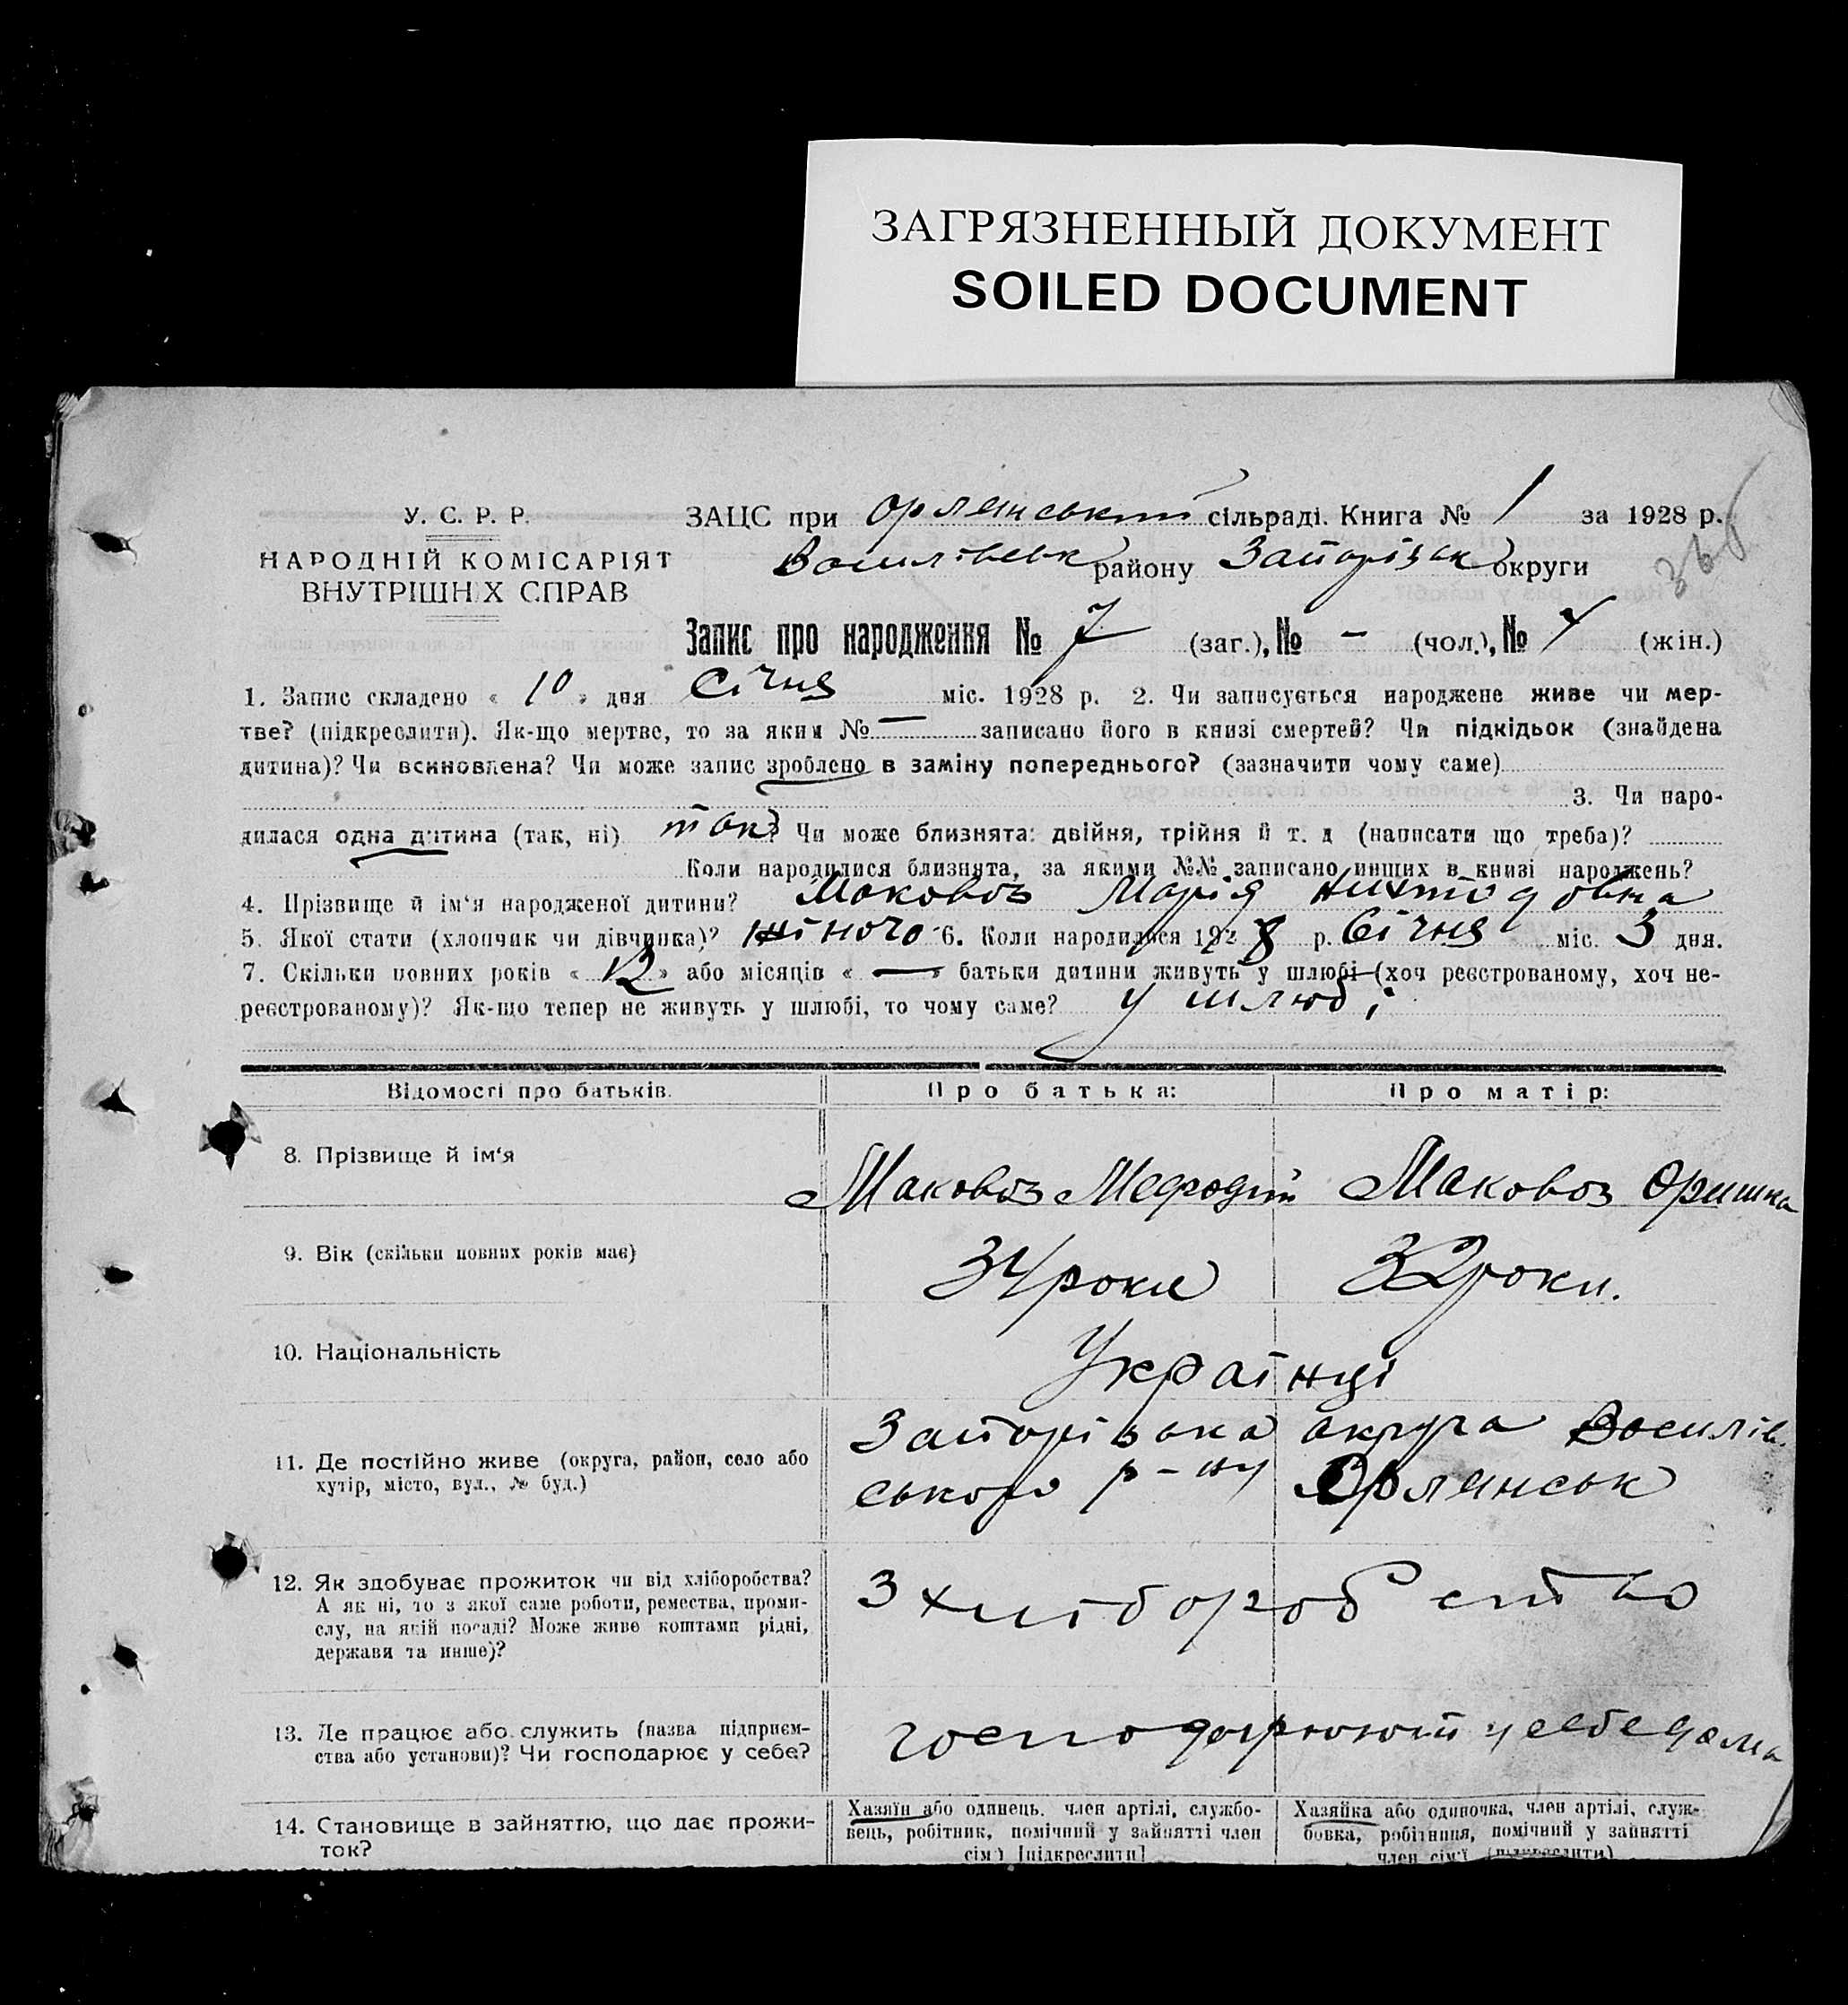 ЗАГРЯЗНЕННЫЙ ДОКУМЕНТ
SOILED DOCUMENT
У. С. Р. Р.
НАРОДНІЙ КОМІСАРІЯТ
ВНУТРІШНІХ СПРАВ
ЗАЦС при Орлянський сільраді. Книга № 1 за 1928 р.
Василівськ району Запорізьк округи
Запис про народження № 7 (заг.), № – (чол.), № 4 (жін.)
1. Запис складено « 10 » дня Січня міс. 1928 р. 2. Чи записується народжене живе чи мер-
тве? (підкреслити). Як-що мертве, то за яким № — записано його в книзі смертей? Чи підкідьок (знайдена
дитина)? Чи всиновлена? Чи може запис зроблено в заміну попереднього? (зазначити чому саме)
3. Чи наро-
дилася одна дитина (так, ні) так? Чи може близнята: двійня, трійня й т. д (написати що треба)?
Коли народилися близнята, за якими №№ записано инших в книзі народжень?
4. Прізвище й ім'я народженої дитини? Маковоз Марія
5. Якої стати (хлопчик чи дівчинка)? жіночо 6. Коли народилося 1928 р. Січня міс. 3 дня.
7. Скільки повних років « 12 » або місяців « — » батьки дитини живуть у шлюбі (хоч реєстрованому, хоч не-
реєстрованому)? Як-що тепер не живуть у шлюбі, то чому саме? у шлюбі
Відомості про батьків. Про батька: Про матір:
8. Прізвище й ім'я Маковоз Мефодій Маковоз Оришка
9. Вік (скільки повних років має) 34 роки 32 роки.
10. Національність Українці
11. Де постійно живе (округа, район, село або
хутір, місто, вул., № буд.)
Запорізька округа Василів
ського р-ну Орлянськ
12. Як здобуває прожиток чи від хліборобства?
А як ні, то з якої саме роботи, ремества, проми-
слу, на якій посаді? Може живе коштами рідні,
держави та инше)?
З хліборобство
13. Де працює або служить (назва підприєм-
ства або установи)? Чи господарює у себе?
господарюют у себе дома
14. Становище в зайняттю, що дає прожи-
ток?
Хазяїн або одинець, член артілі, службо-
вець, робітник, помічний у зайнятті член
сім'ї [підкреслити]
Хазяйка або одиночка, член артілі, служ-
бовка, робітниця, помічний у зайнятті
член сім'ї (підкреслити)